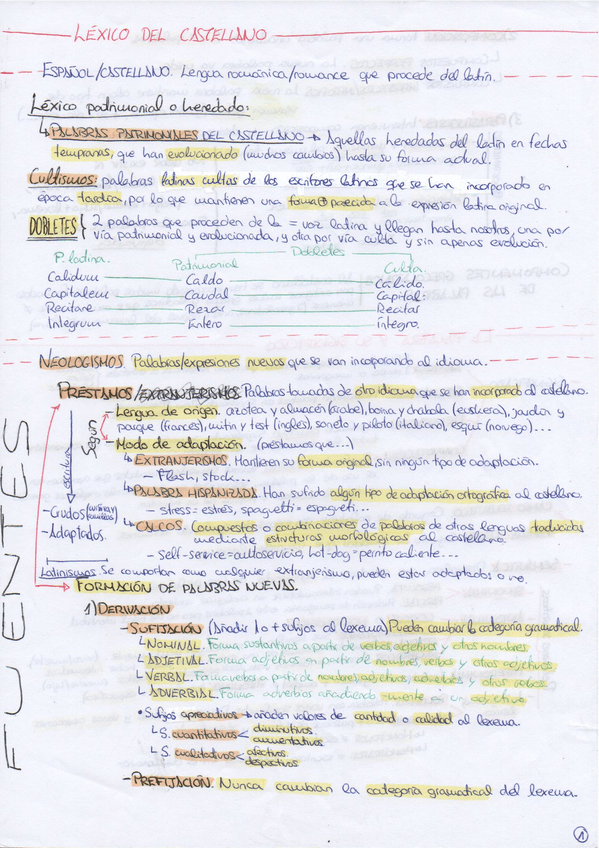 LÉXICO DEL CASTELLANO
ESPAÑOL/CASTELLANO. Lengua románica/romance que procede del latín.
Léxico patrimonial o heredado:
↳ PALABRAS PATRIMONIALES DEL CASTELLANO → Aquellas heredadas del latín en fechas
tempranas, que han evolucionado (muchos cambios) hasta su forma actual.
Cultismos: palabras latinas cultas de los escritores latinos que se han incorporado en
época tardía, por lo que mantienen una forma + parecida a la expresión latina original.
DOBLETES { 2 palabras que proceden de la = voz latina y llegan hasta nosotros, una por
vía patrimonial y evolucionada, y otra por vía culta y sin apenas evolución.
Dobletes
P. latina. Patrimonial Culta
Calidum Caldo Cálido.
Capitalem Caudal Capital.
Recitare Rezar Recitar
Integrum Entero Íntegro.
NEOLOGISMOS. Palabras/expresiones nuevas que se van incoporando al idioma.
PRÉSTAMOS/EXTRANJERISMOS. Palabras tomadas de otro idioma que se han incorporado al castellano.
Según
Lengua de origen. azotea y almacén (árabe), boina y chabola (euskera), jardín y
parque (francés), mitin y test (inglés), soneto y piloto (italiano), esquí (noruego)...
Modo de adaptación. (préstamos que...)
↳ EXTRANJERISMOS. Mantienen su forma original, sin ningún tipo de adaptación.
- Flash, stock...
↳ PALABRA HISPANIZADA. Han sufrido algún tipo de adaptación ortográfica al castellano.
- stress = estrés, spaguetti = espagueti...
↳ CALCOS. Compuestos o combinaciones de palabras de otras lenguas traducidas
mediante estructuras morfológicas al castellano.
- Self-service = autoservicio, hot-dog = perrito caliente...
escritura
- Crudos
- Adaptados.
Latinismos Se comportan como cualquier extranjerismo, pueden estar adaptados o no.
FORMACIÓN DE PALABRAS NUEVAS.
1) DERIVACIÓN
- SUFIJACIÓN (Añadir 1 o + sufijos al lexema) Pueden cambiar la categoría gramatical.
↳ NOMINAL. Forma sustantivos a partir de verbos, adjetivos y otros nombres.
↳ ADJETIVAL. Forma adjetivos a partir de nombres, verbos y otros adjetivos.
↳ VERBAL. Forma verbos a partir de nombres, adjetivos, adverbios y otros verbos.
↳ ADVERBIAL. Forma adverbios añadiendo -mente a un adjetivo.
• Sufijos apreciativos → añaden valores de cantidad o calidad al lexema.
↳ S. cuantitativos < diminutivos
aumentativos
↳ S. cualitativos < afectivos.
despectivos
- PREFIJACIÓN. Nunca cambian la categoría gramatical del lexema.
FUENTES
1